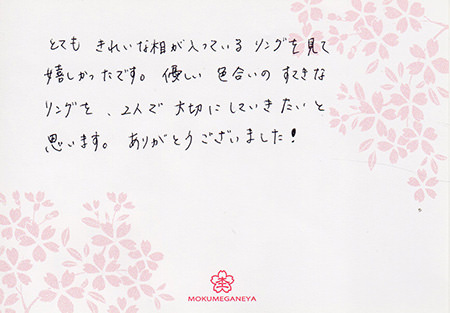 とても きれいな相が入っている リングを見て
嬉しかったです。優しい 色合いの すてきな
リングを、2人で 大切にしていきたいと
思います。ありがとうございました!
MOKUMEGANEYA